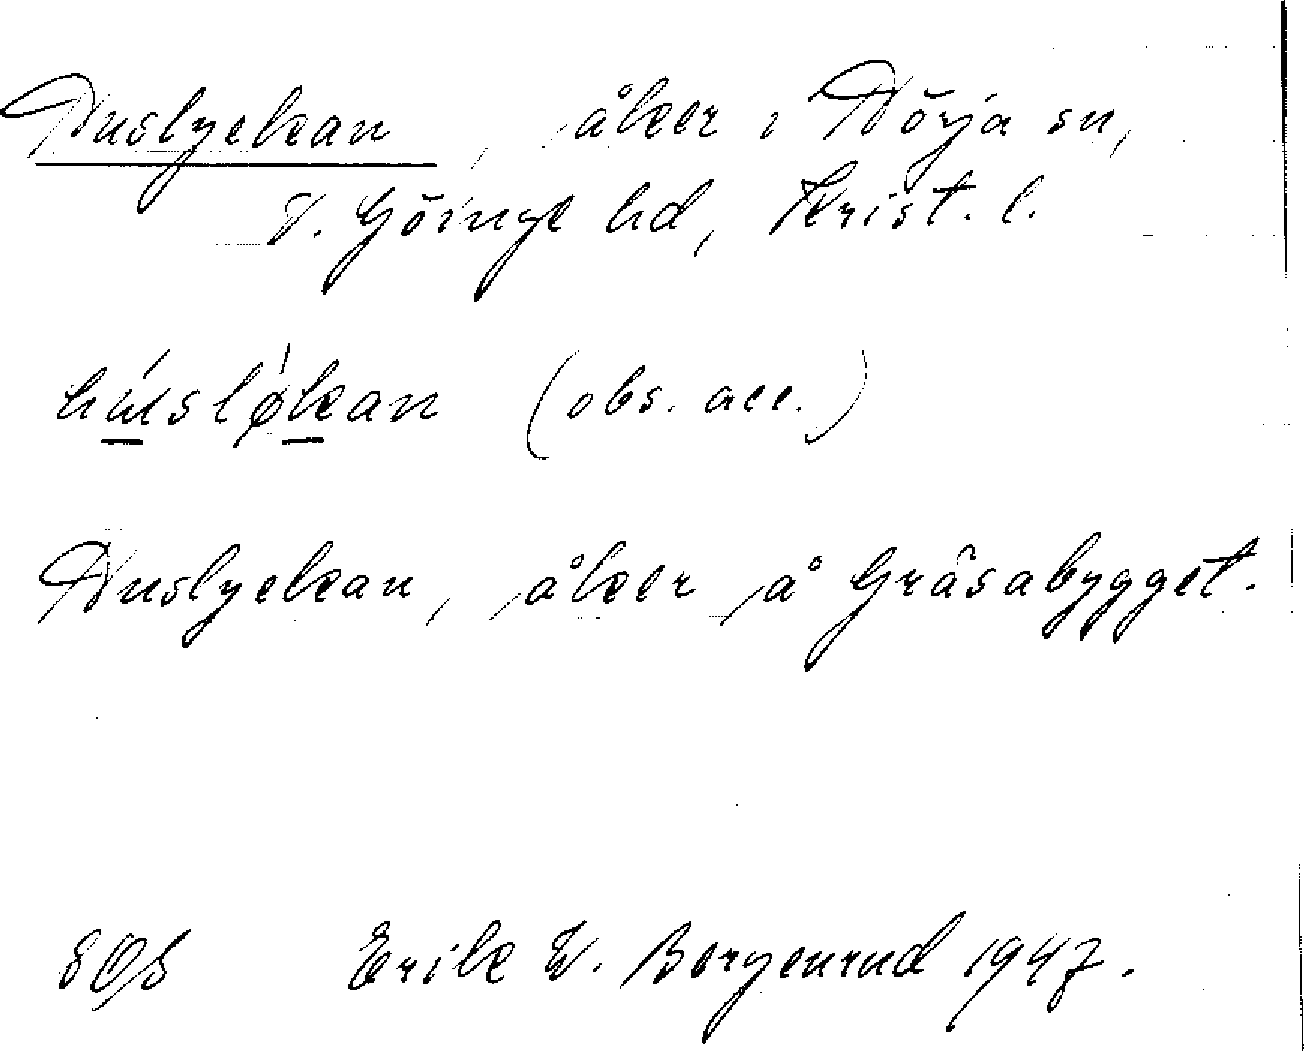 Huslyckan, åker i Hörja sn,
V. Göinge hd, Krist. l.
húsløkan (obs. acc.)
Huslyckan, åker å Gräsabygget.
Erik W. Borgenrud 1947.